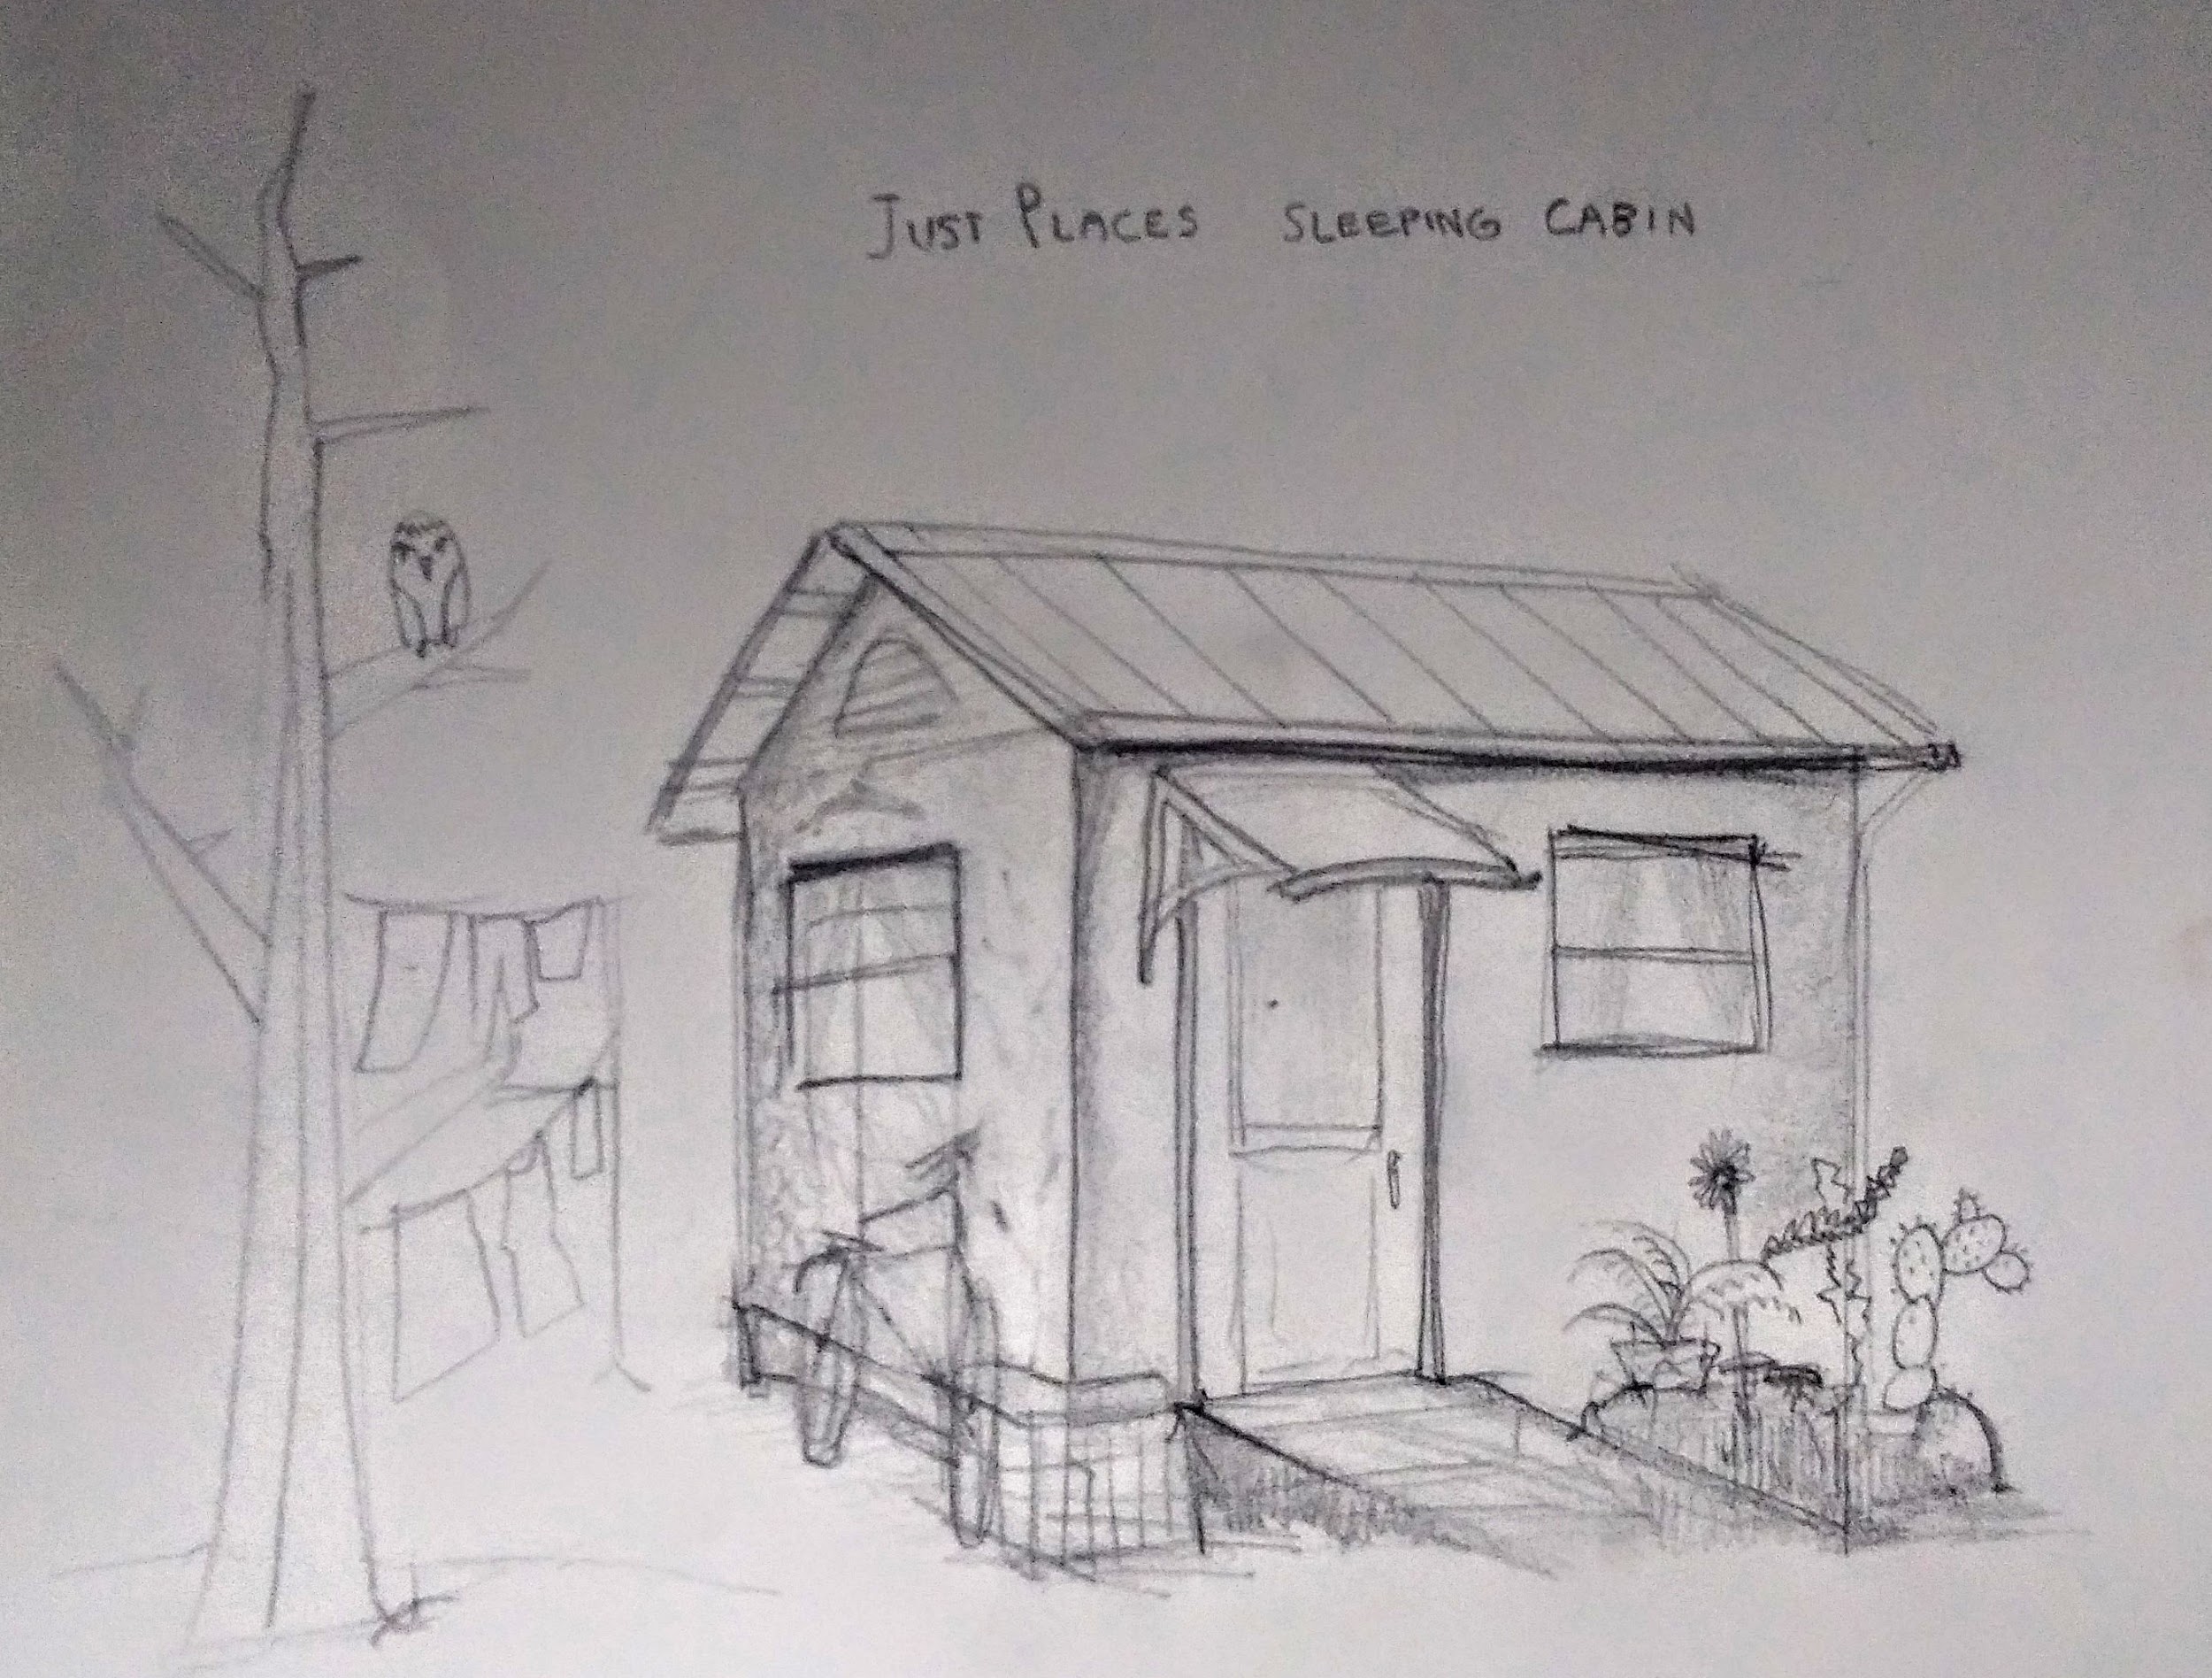 JUST PLACES SLEEPING CABIN